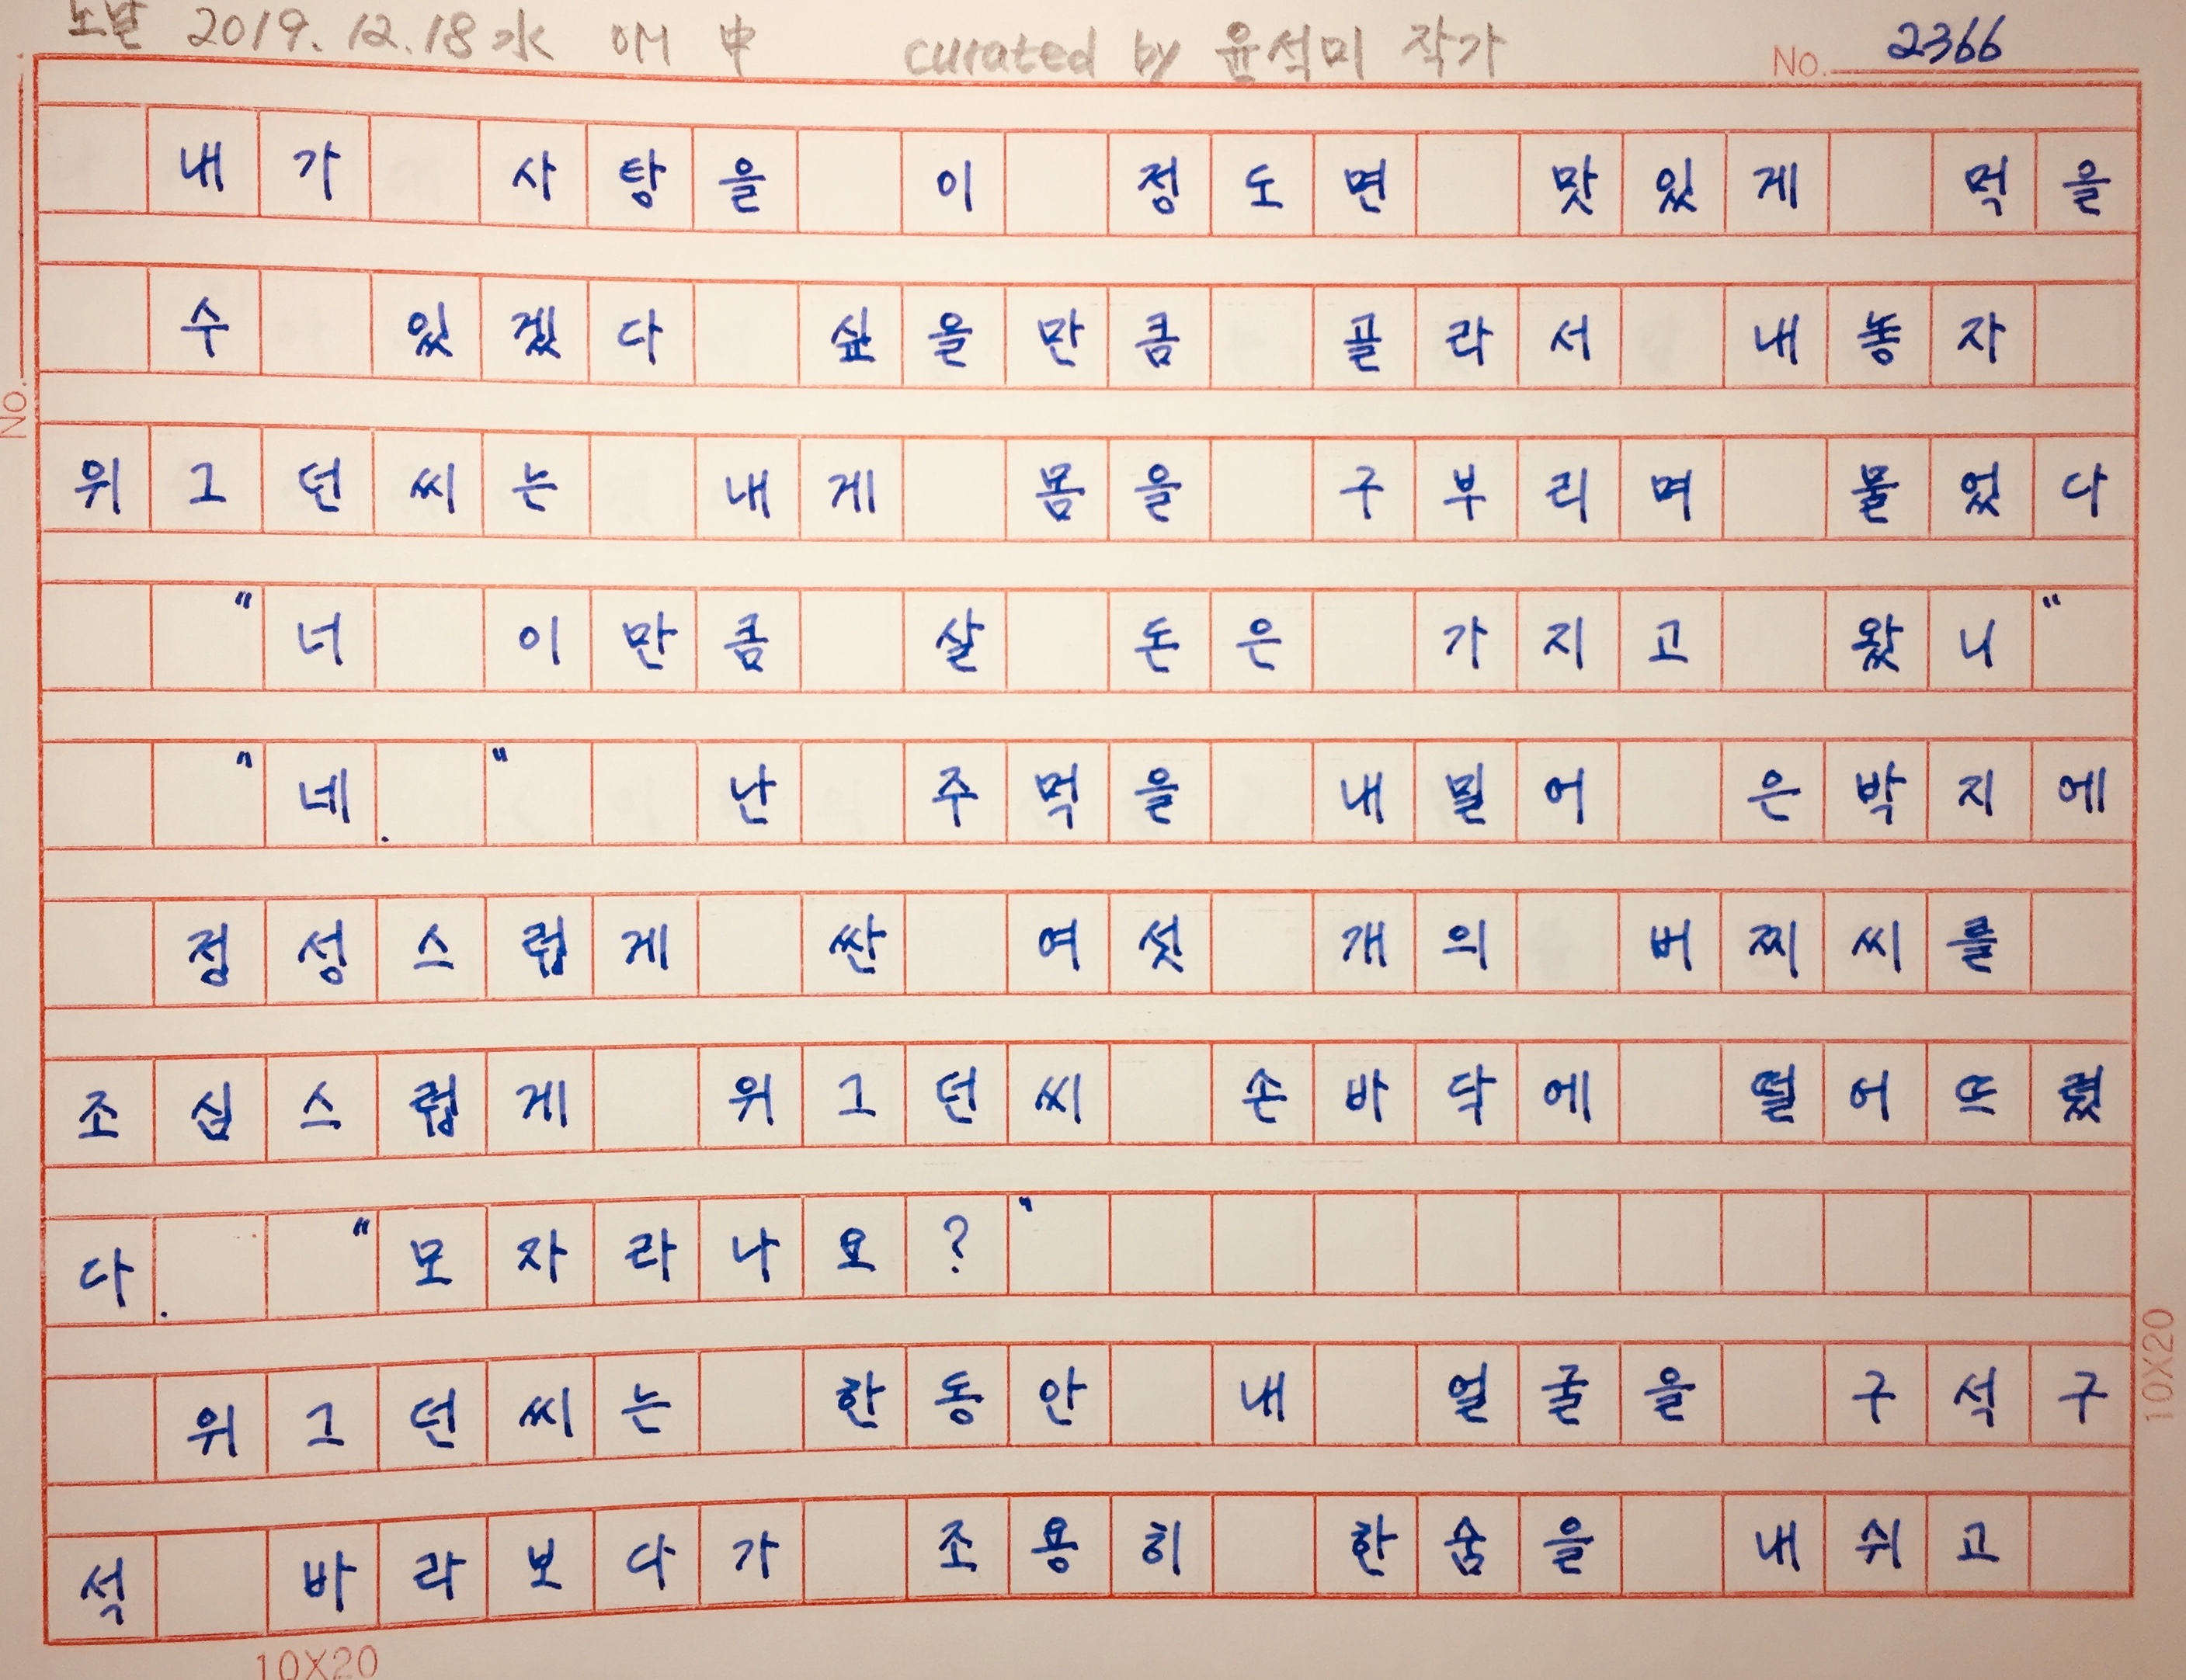 노발 2019. 12. 18 水 이비 申 curated by 윤석미 작가 No. 2366
내가 사탕을 이 정도면 맛있게 먹을
수 있겠다 싶을만큼 골라서 내놓자
No.
위그던씨는 내게 몸을 구부리며 물었다
"너 이만큼 살 돈은 가지고 왔니"
"네." 난 주먹을 내밀어 은박지에
정성스럽게 싼 여섯 개의 버찌씨를
조심스럽게 위그던씨 손바닥에 떨어뜨렸
다. "모자라나요?"
위그던씨는 한동안 내 얼굴을 구석구
석 바라보다가 조용히 한숨을 내쉬고
10X20
10X20